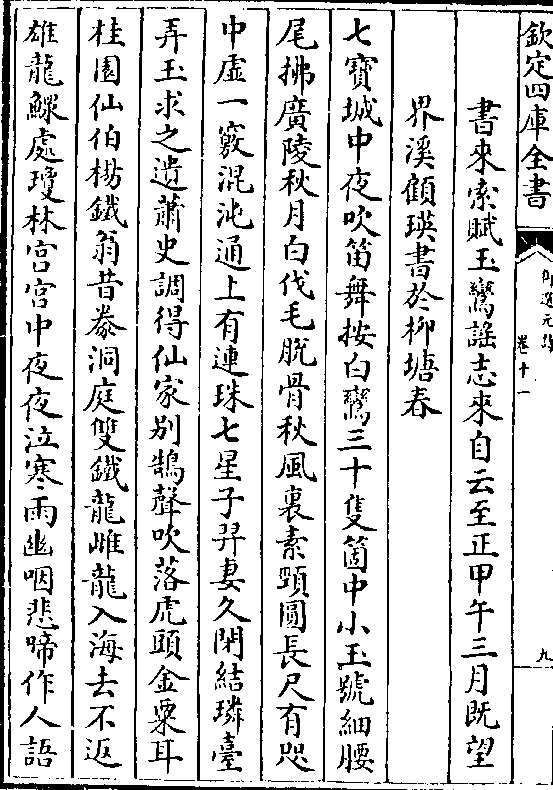 欽定四庫全書
御選元詩
卷十一
九
書來索賦玉鸞謠志來自云至正甲午三月既望
界溪顧瑛書於柳塘春
七寶城中夜吹笛舞按白鸞三十隻箇中小玉號細腰
尾拂廣陵秋月白伐毛脫骨秋風裏素頸圓長尺有咫
中虛一竅混沌通上有連珠七星子羿妻久閉結璘臺
弄玉求之遺蕭史調得仙家別鵠聲吹落虎頭金粟耳
桂園仙伯楊鐵翁昔豢洞庭雙鐵龍雌龍入海去不返
雄龍鰥處瓊林宮宮中夜夜泣寒雨幽咽悲啼作人語